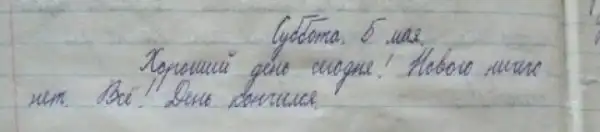 Суббота. 5 мая
Хороший день сегодня! Нового ничего
нет. Всё! День кончился.